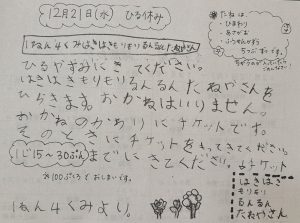 12月21日(水) ひる休み
たねは、
・ひまわり
・あさがお
・ふうせんかずら
1ねん4くみはきはきもりもりるんるんたねやさん
ひるやすみに きてください。
はきはきもりもりるんるん たねやさんを
ひらきます。おかねはいりません。
おかねのかわりに チケットです。
そのときにチケットをもってきてください。
1じ15~30ぷんまでにきてください。
チケット
※100ぷくろで おしまいです。
はきはき
もりもり
るんるん
たねやさん
1ねん4くみより。